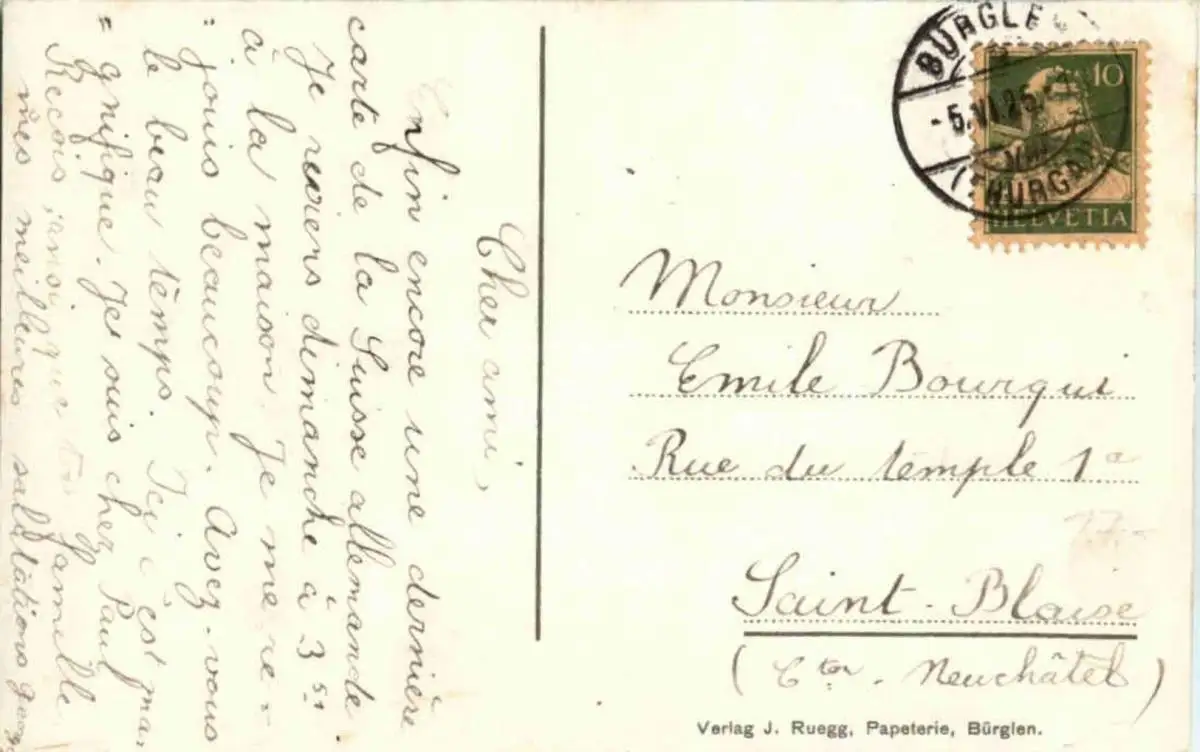 Cher ami,
Enfin encore une dernière
carte de la Suisse allemande
Je reviens dimanche à 3 51
à la maison. Je me ré-
= jouis beaucoup. Avez-vous
le beau temps. Ici c'est ma
= gnifique. Je suis chez Paul
Reçois, ainsi que ta famille
mes meilleures salutations
BÜRGLEN
-5.VI.25
(THURGAU)
10
HELVETIA
Monsieur
Emile Bourqui
Rue du temple 1a
17.-
Saint-Blaise
(Cton. Neuchâtel)
Verlag J. Ruegg, Papeterie, Bürglen.